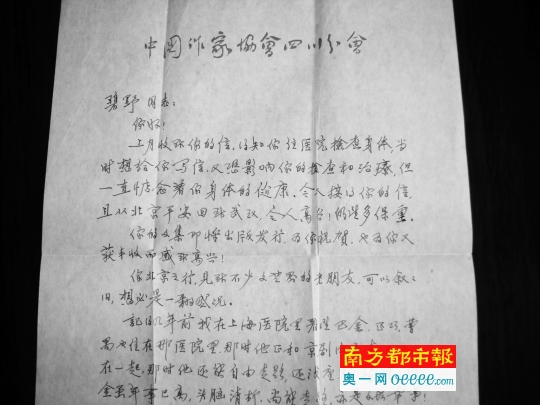 中国作家协会四川分会
碧野同志：
你好！
上月收到你的信，得知你住医院检查身体，当
时想给你写信，又恐影响你的检查和治疗，但
一直惦念着你身体的健康。今人接到你的信，
且从北京平安回到武汉，令人高兴！仍望多保重。
你的文集即将出版发行，为你祝贺，也为你又
获丰收而感到高兴！
你北京之行，见到不少文艺界的老朋友，可以叙
旧，想必是一翻盛况。
记得几年前我在上海医院里看望巴金，正巧，曹
禺也住在那医院里，那时他正和
在一起，那时他还能自由走路，还谈
金虽年事已高，头脑清析，尚能
南方都市报
奥一网 oeeee.com